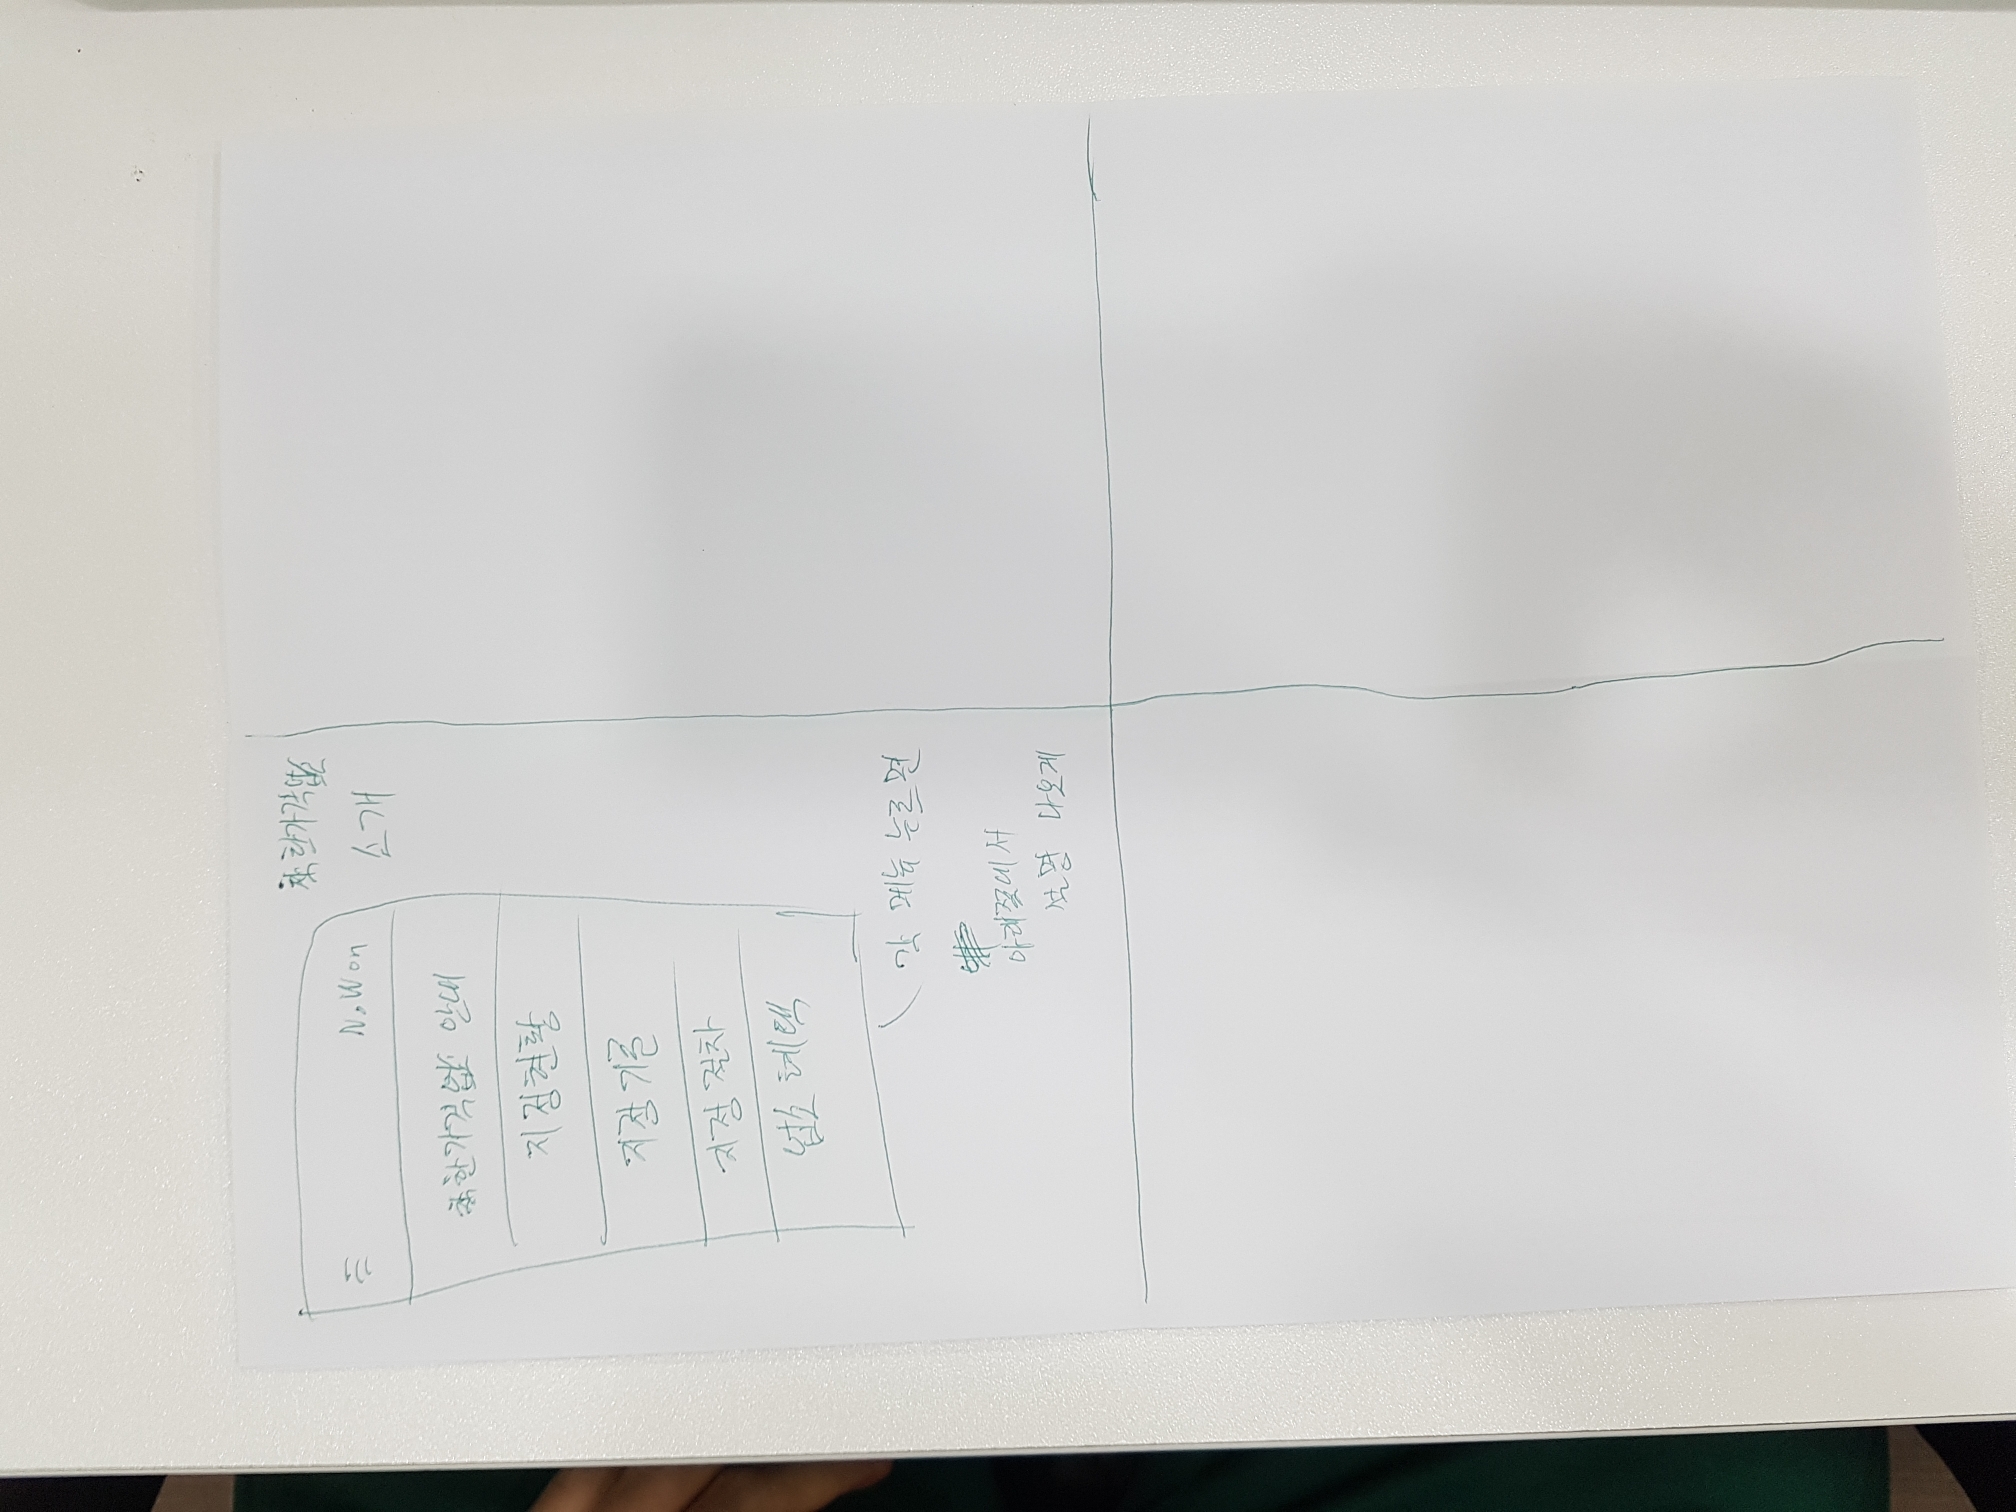 착한가격업소
소개
N.Won
착한가격업소 안내
지정현황
지정기준
지정절차
업소혜택
각 메뉴 누르면
아래쪽에서
설명 나오게